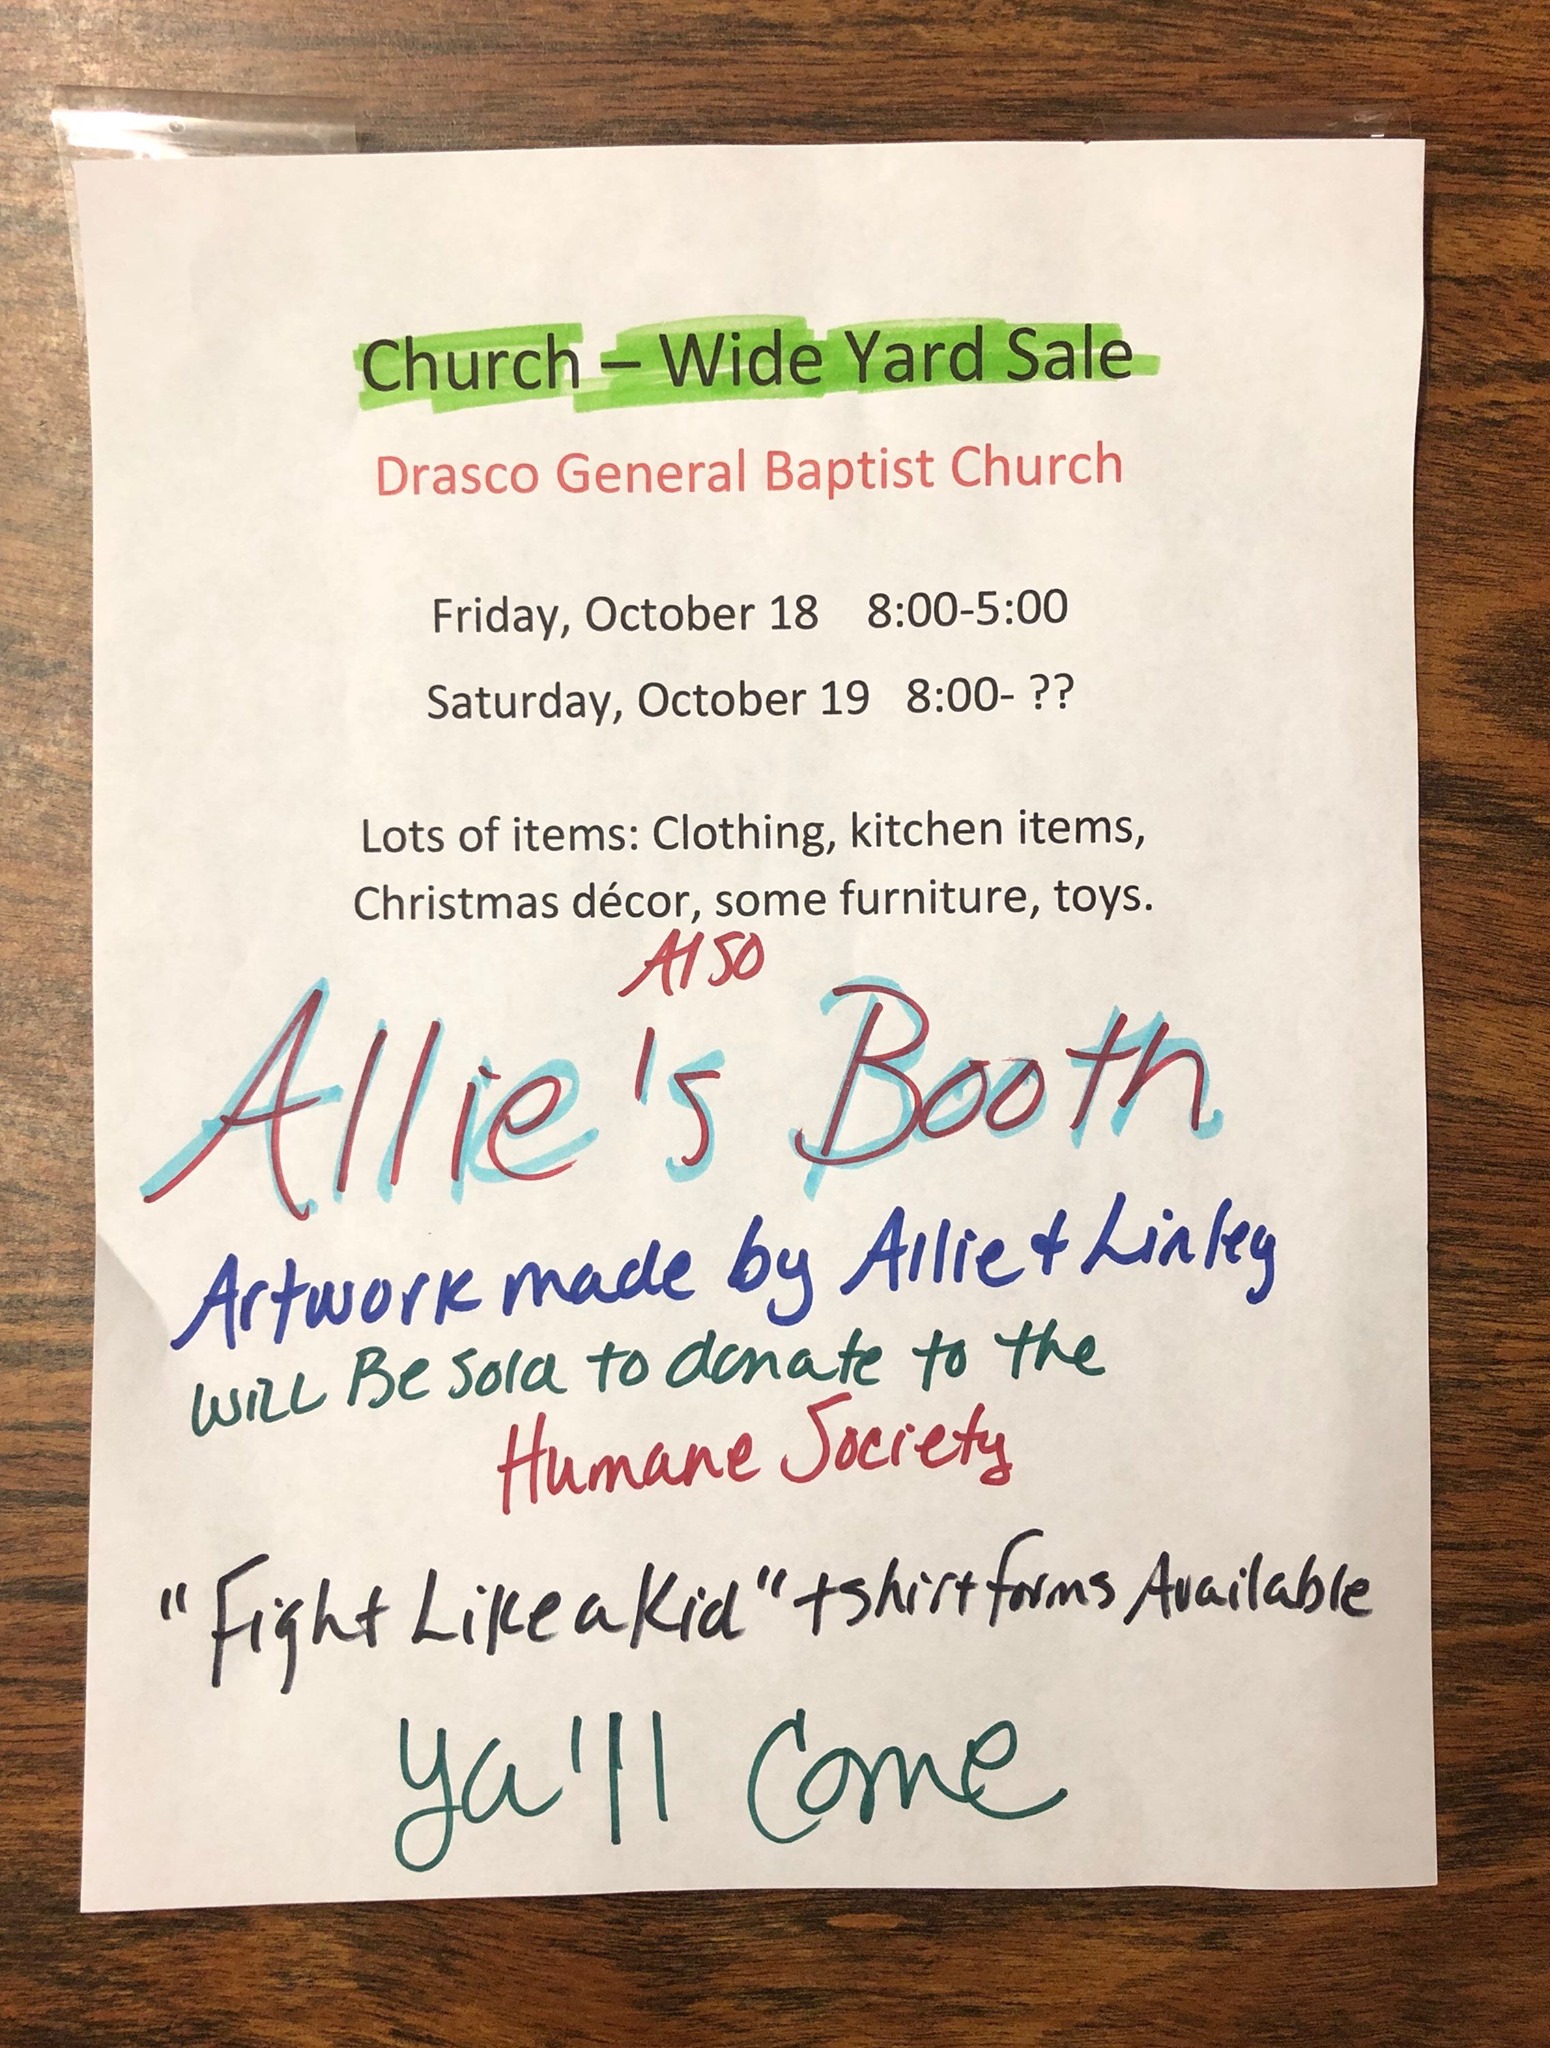 Church – Wide Yard Sale
Drasco General Baptist Church
Friday, October 18 8:00-5:00
Saturday, October 19 8:00- ??
Lots of items: Clothing, kitchen items,
Christmas décor, some furniture, toys.
Also
Allie's Booth
Artwork made by Allie + Linley
will Be sold to donate to the
Humane Society
"Fight Like a Kid" tshirt forms Available
ya'll come